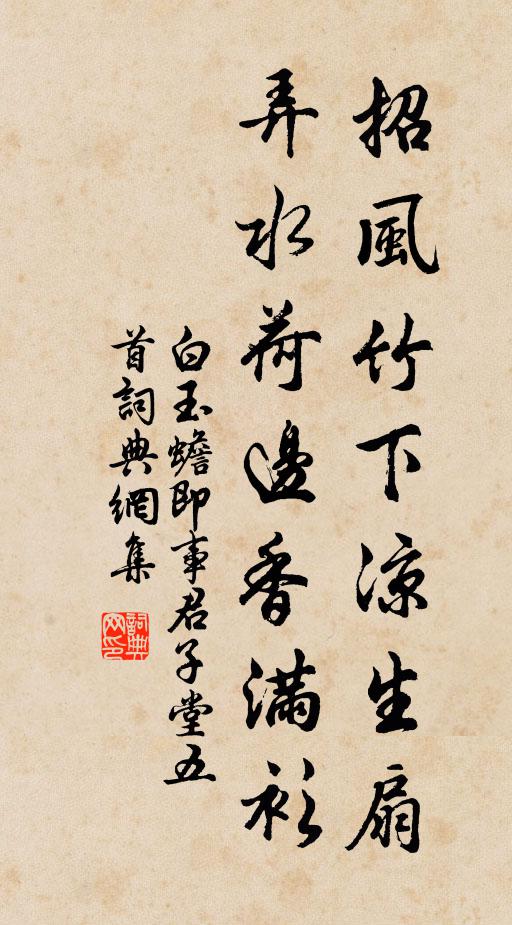 招風竹下涼生扇
弄水荷邊香滿衫
白玉蟾即事君子堂五
首詞典網集
詞典网印